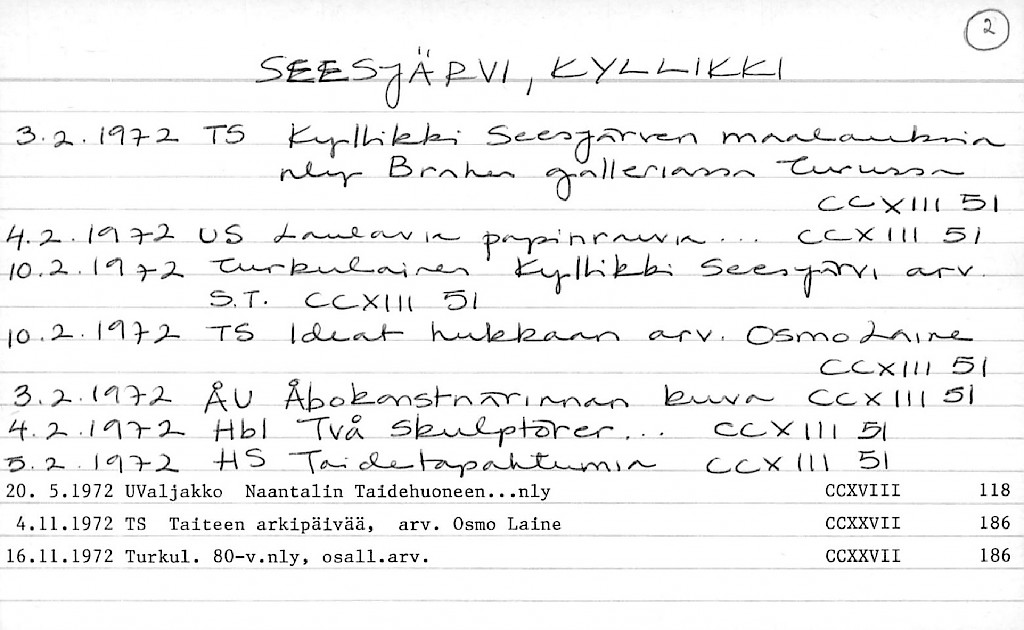 2
SEESJÄRVI, KYLLIKKI
3.2.1972 TS Kyllikki Seesjärven maalauksia
nly Brahen galleriassa Turussa
CCXIII 51
4.2.1972 US Laulavia papinrouvia... CCXIII 51
10.2.1972 Turkulainen Kyllikki Seesjärvi arv.
S.T. CCXIII 51
10.2.1972 TS Ideat hukkaan arv. Osmo Laine
CCXIII 51
3.2.1972 ÅU Åbokonstnärinnan kuva CCXIII 51
4.2.1972 Hbl Två skulptörer... CCXIII 51
5.2.1972 HS Taidetapahtumia CCXIII 51
20. 5.1972 UValjakko Naantalin Taidehuoneen...nly CCXVIII 118
4.11.1972 TS Taiteen arkipäivää, arv. Osmo Laine CCXXVII 186
16.11.1972 Turkul. 80-v.nly, osall.arv. CCXXVII 186